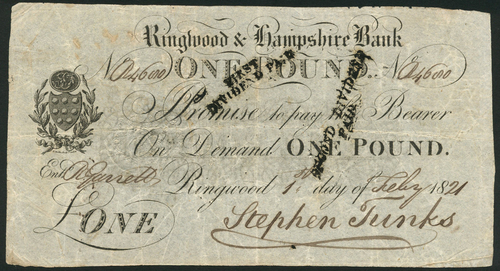 Ringwood & Hampshire Bank
No A4600 ONE POUND. No A4600
FIRST DIVIDEND PAID
SECOND DIVIDEND PAID
I Promise to pay the Bearer
On Demand ONE POUND.
Entd. R Garrett Ringwood 1st day of Feby 1821
£ ONE
Stephen Tunks